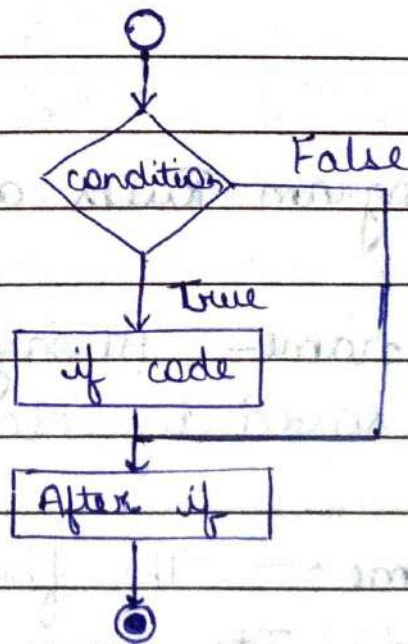 condition
False
True
if code
After if